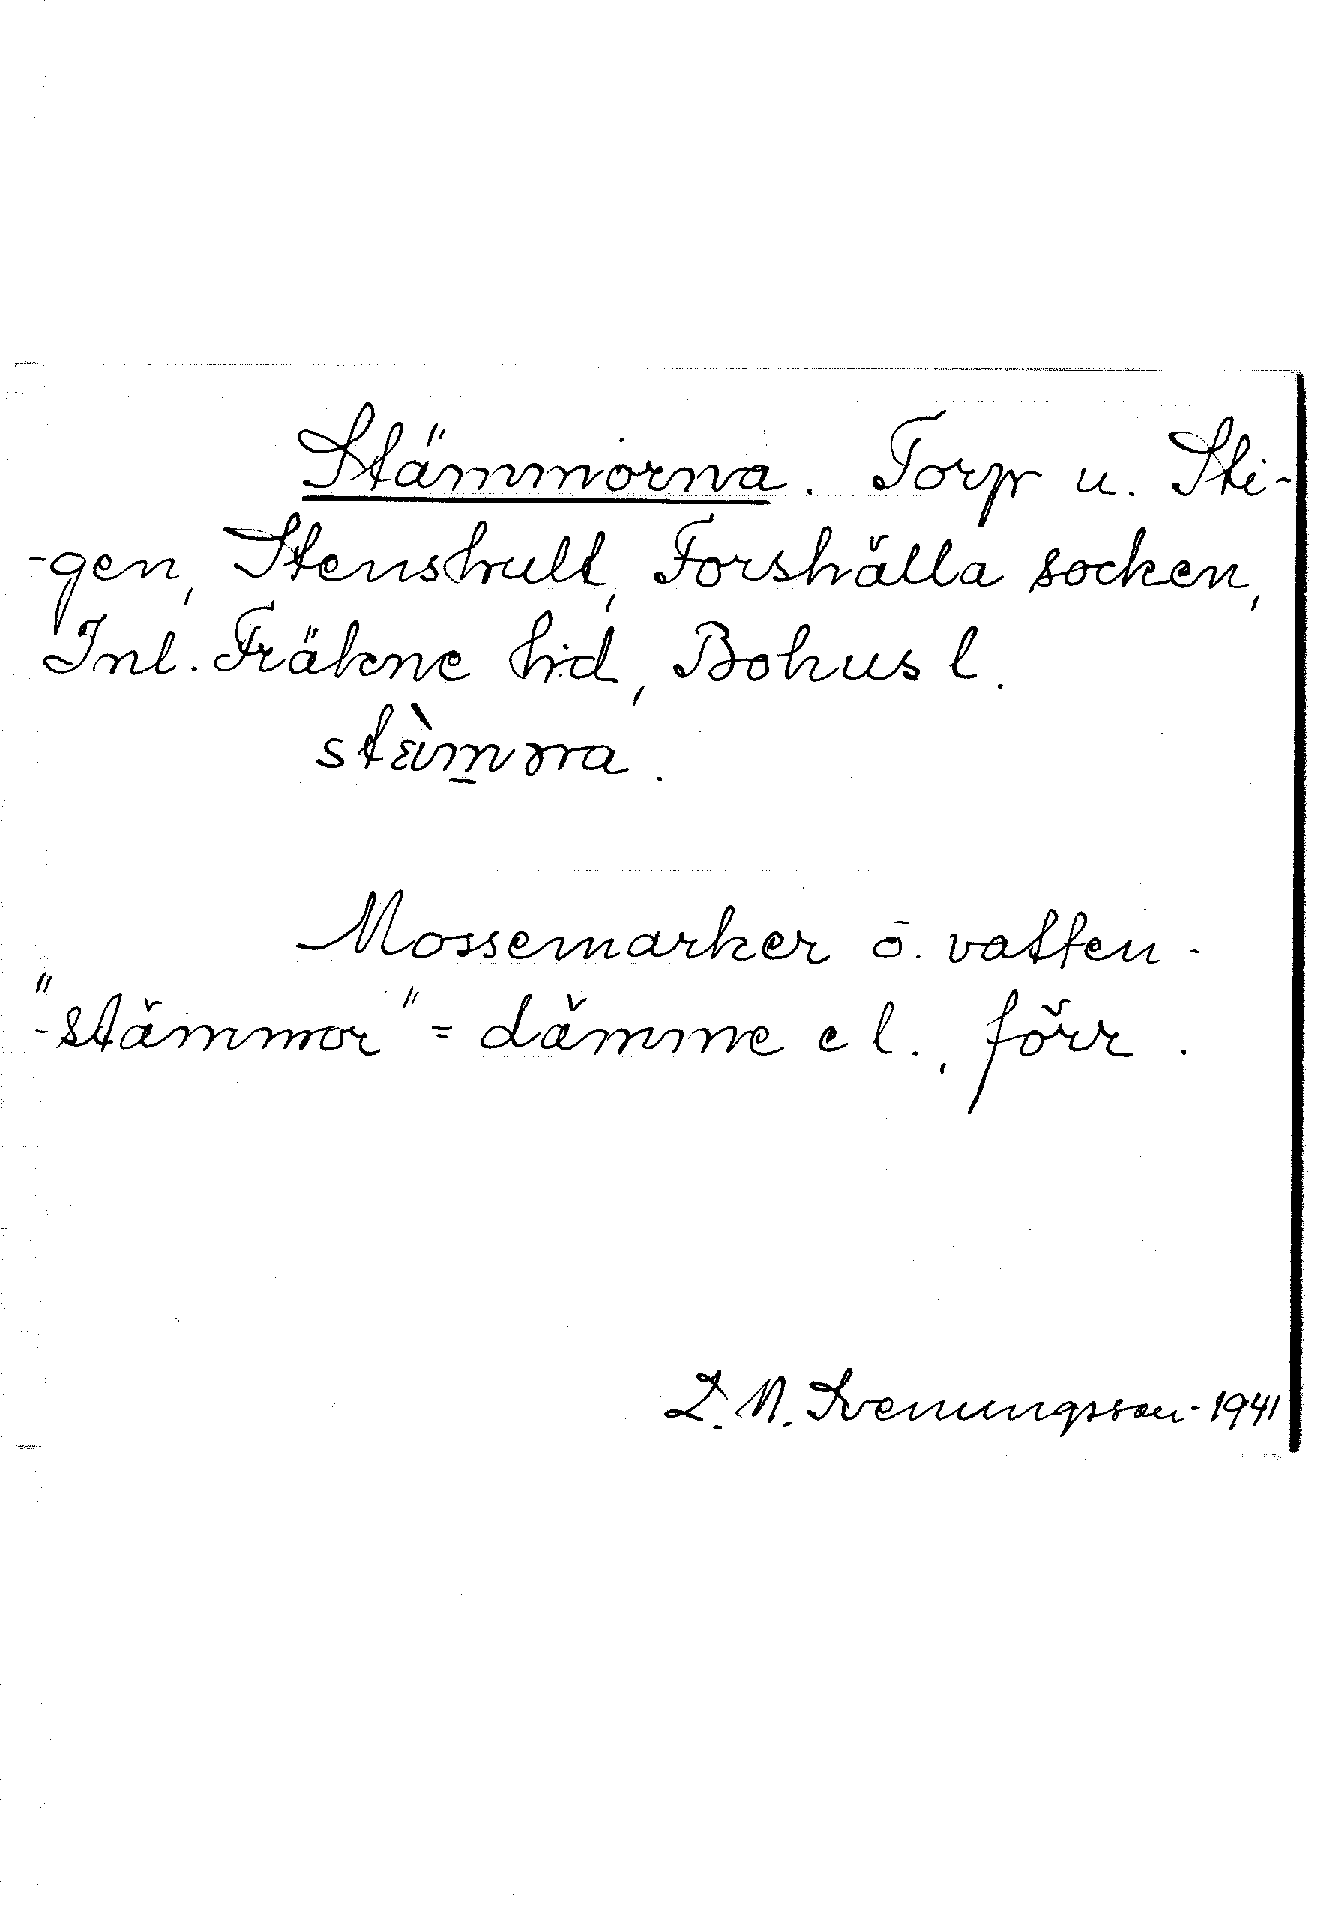 Stämmorna. Torp u. Sti-
-gen, Stenshult, Forshälla socken,
Inl. Fräkne hd, Bohus l.
stæ̀m̲ɔrna.
Mossemarker o. vatten-
"-stämmor" = dämme el., förr.
L. N. Svenungsson - 1941